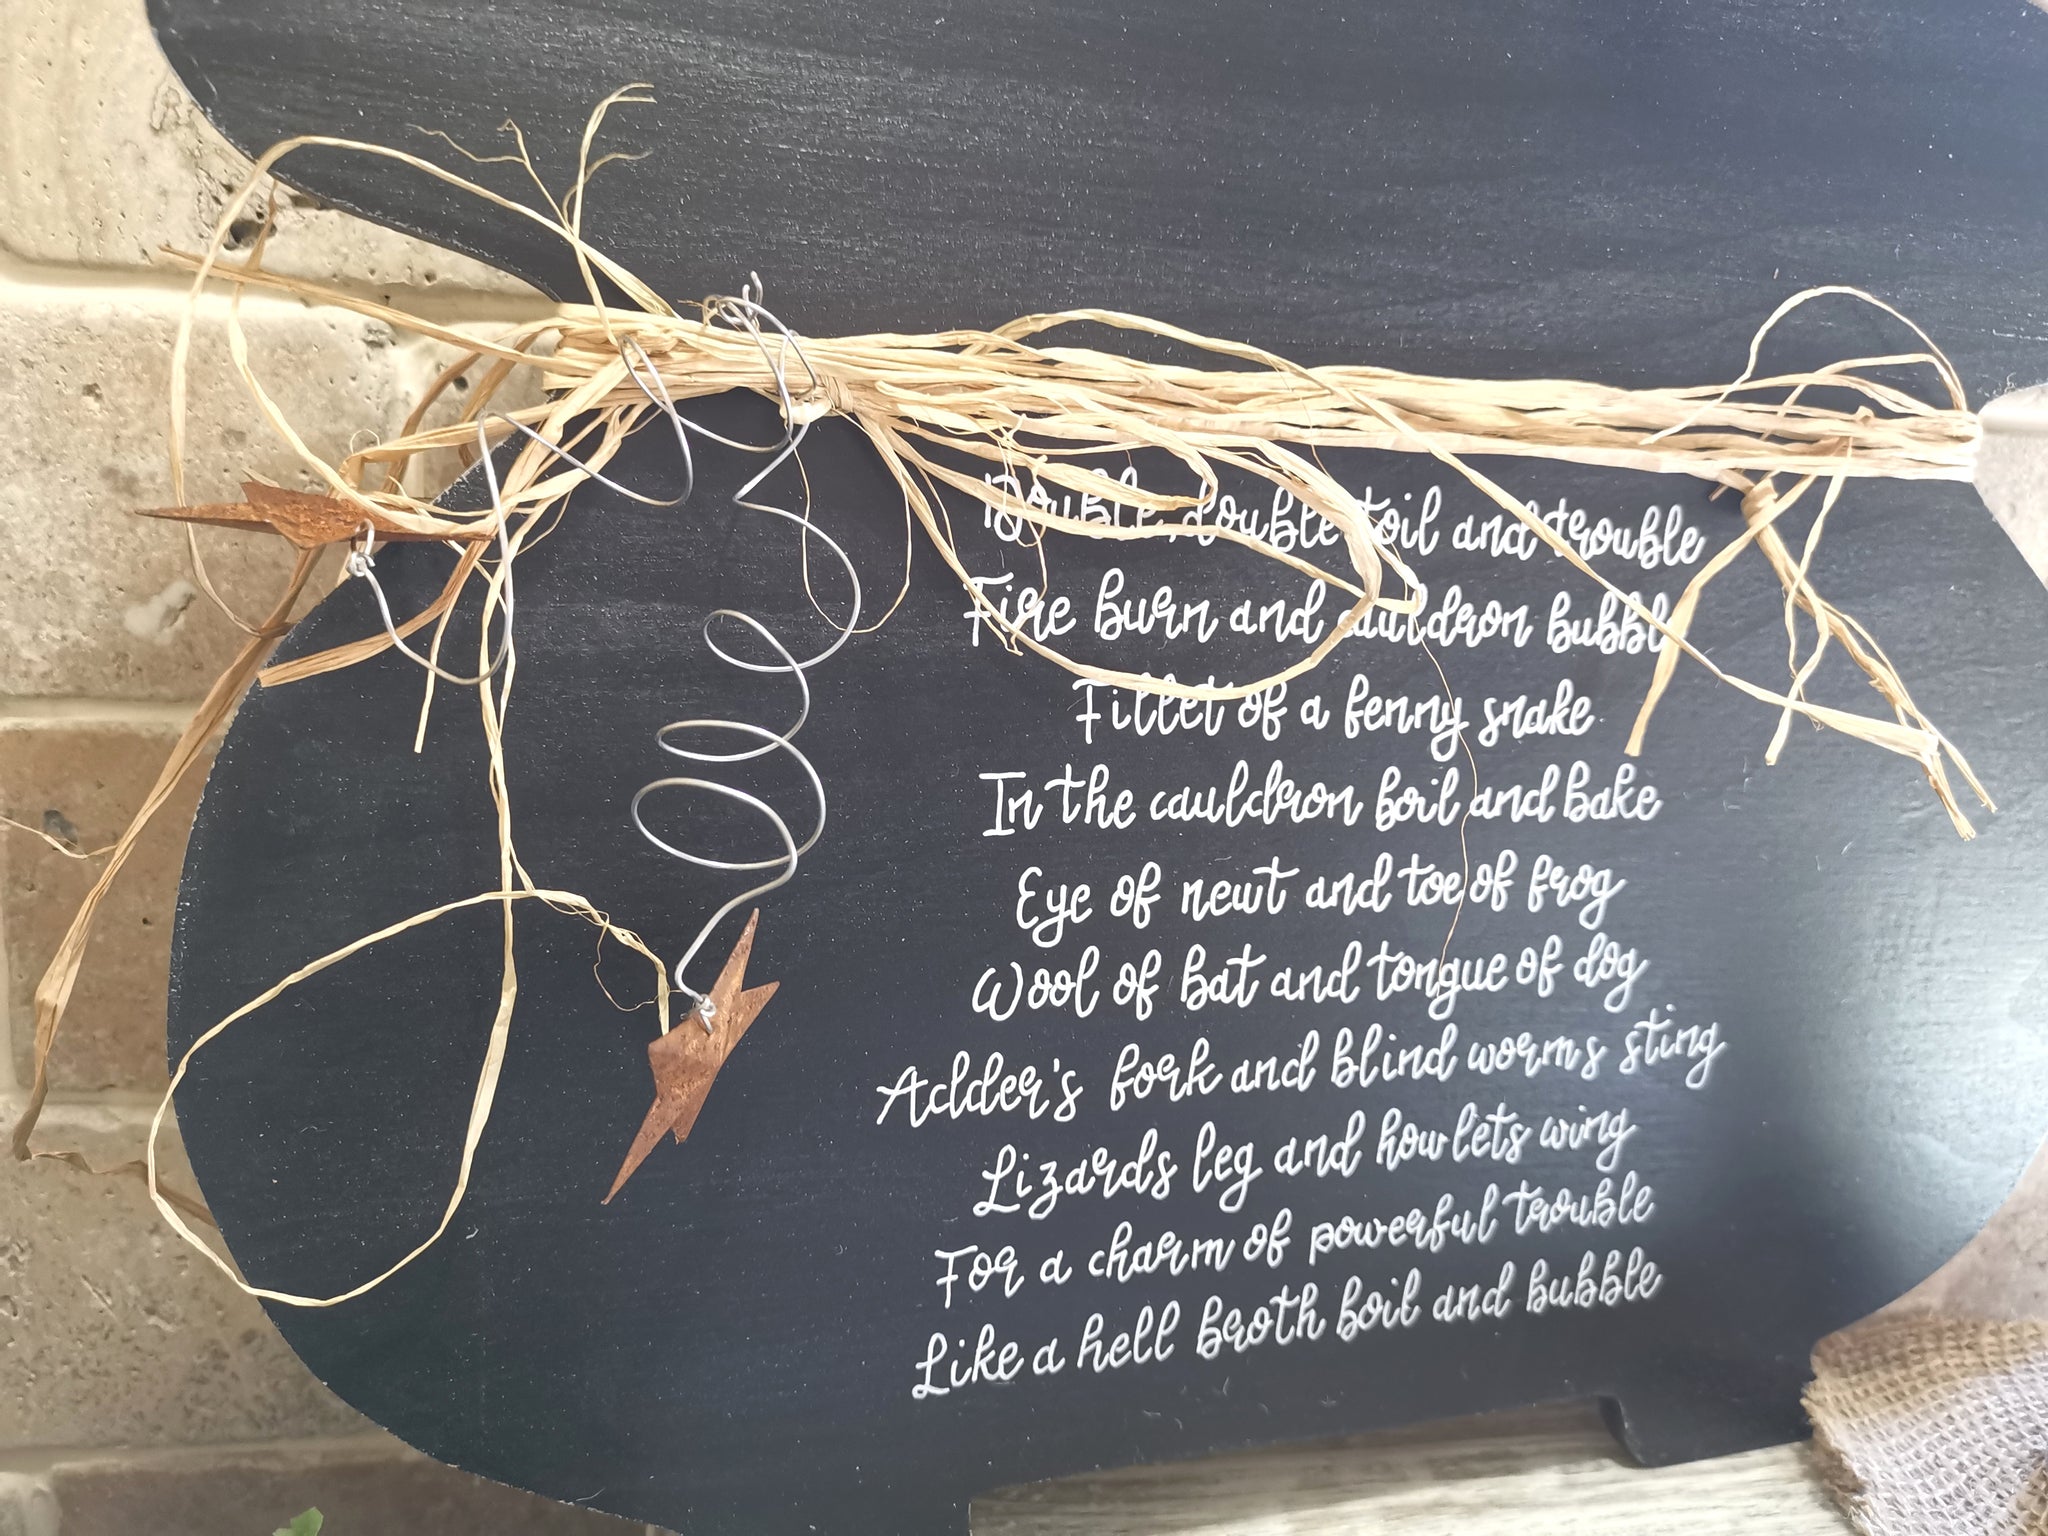 Double, double toil and trouble
Fire burn and cauldron bubble
Fillet of a fenny snake
In the cauldron boil and bake
Eye of newt and toe of frog
Wool of bat and tongue of dog
Adder's fork and blind worms sting
Lizards leg and howlets wing
For a charm of powerful trouble
Like a hell broth boil and bubble